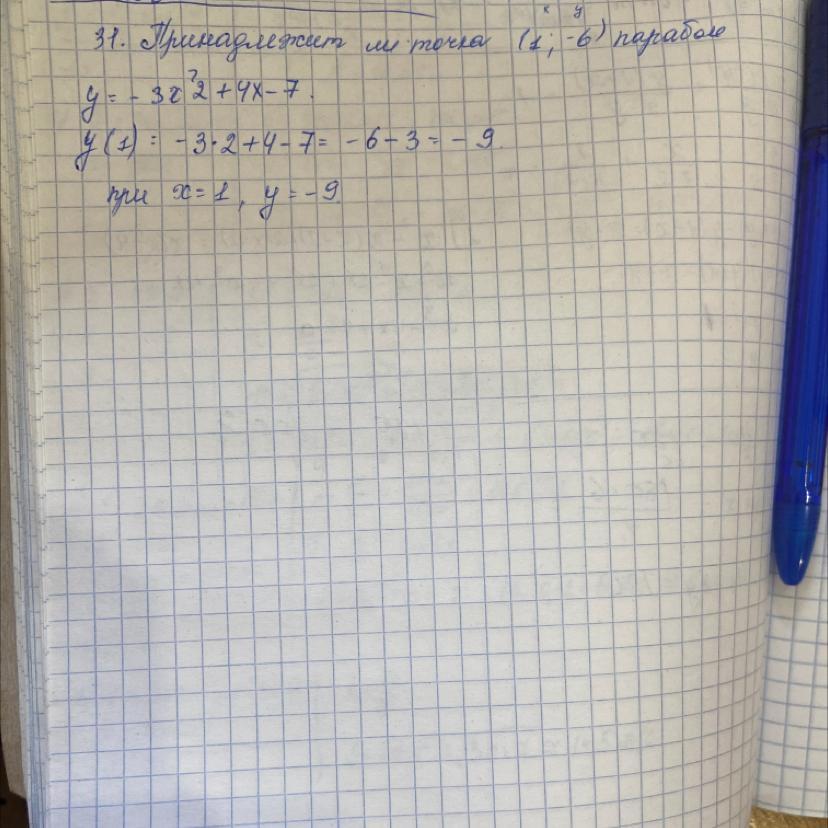 x y
31. Принадлежит ли точка (1; -6) параболе
y = - 3x ? 2 + 4x - 7.
y(1) = -3·2+4-7= -6-3= -9.
при x=1, y=-9.